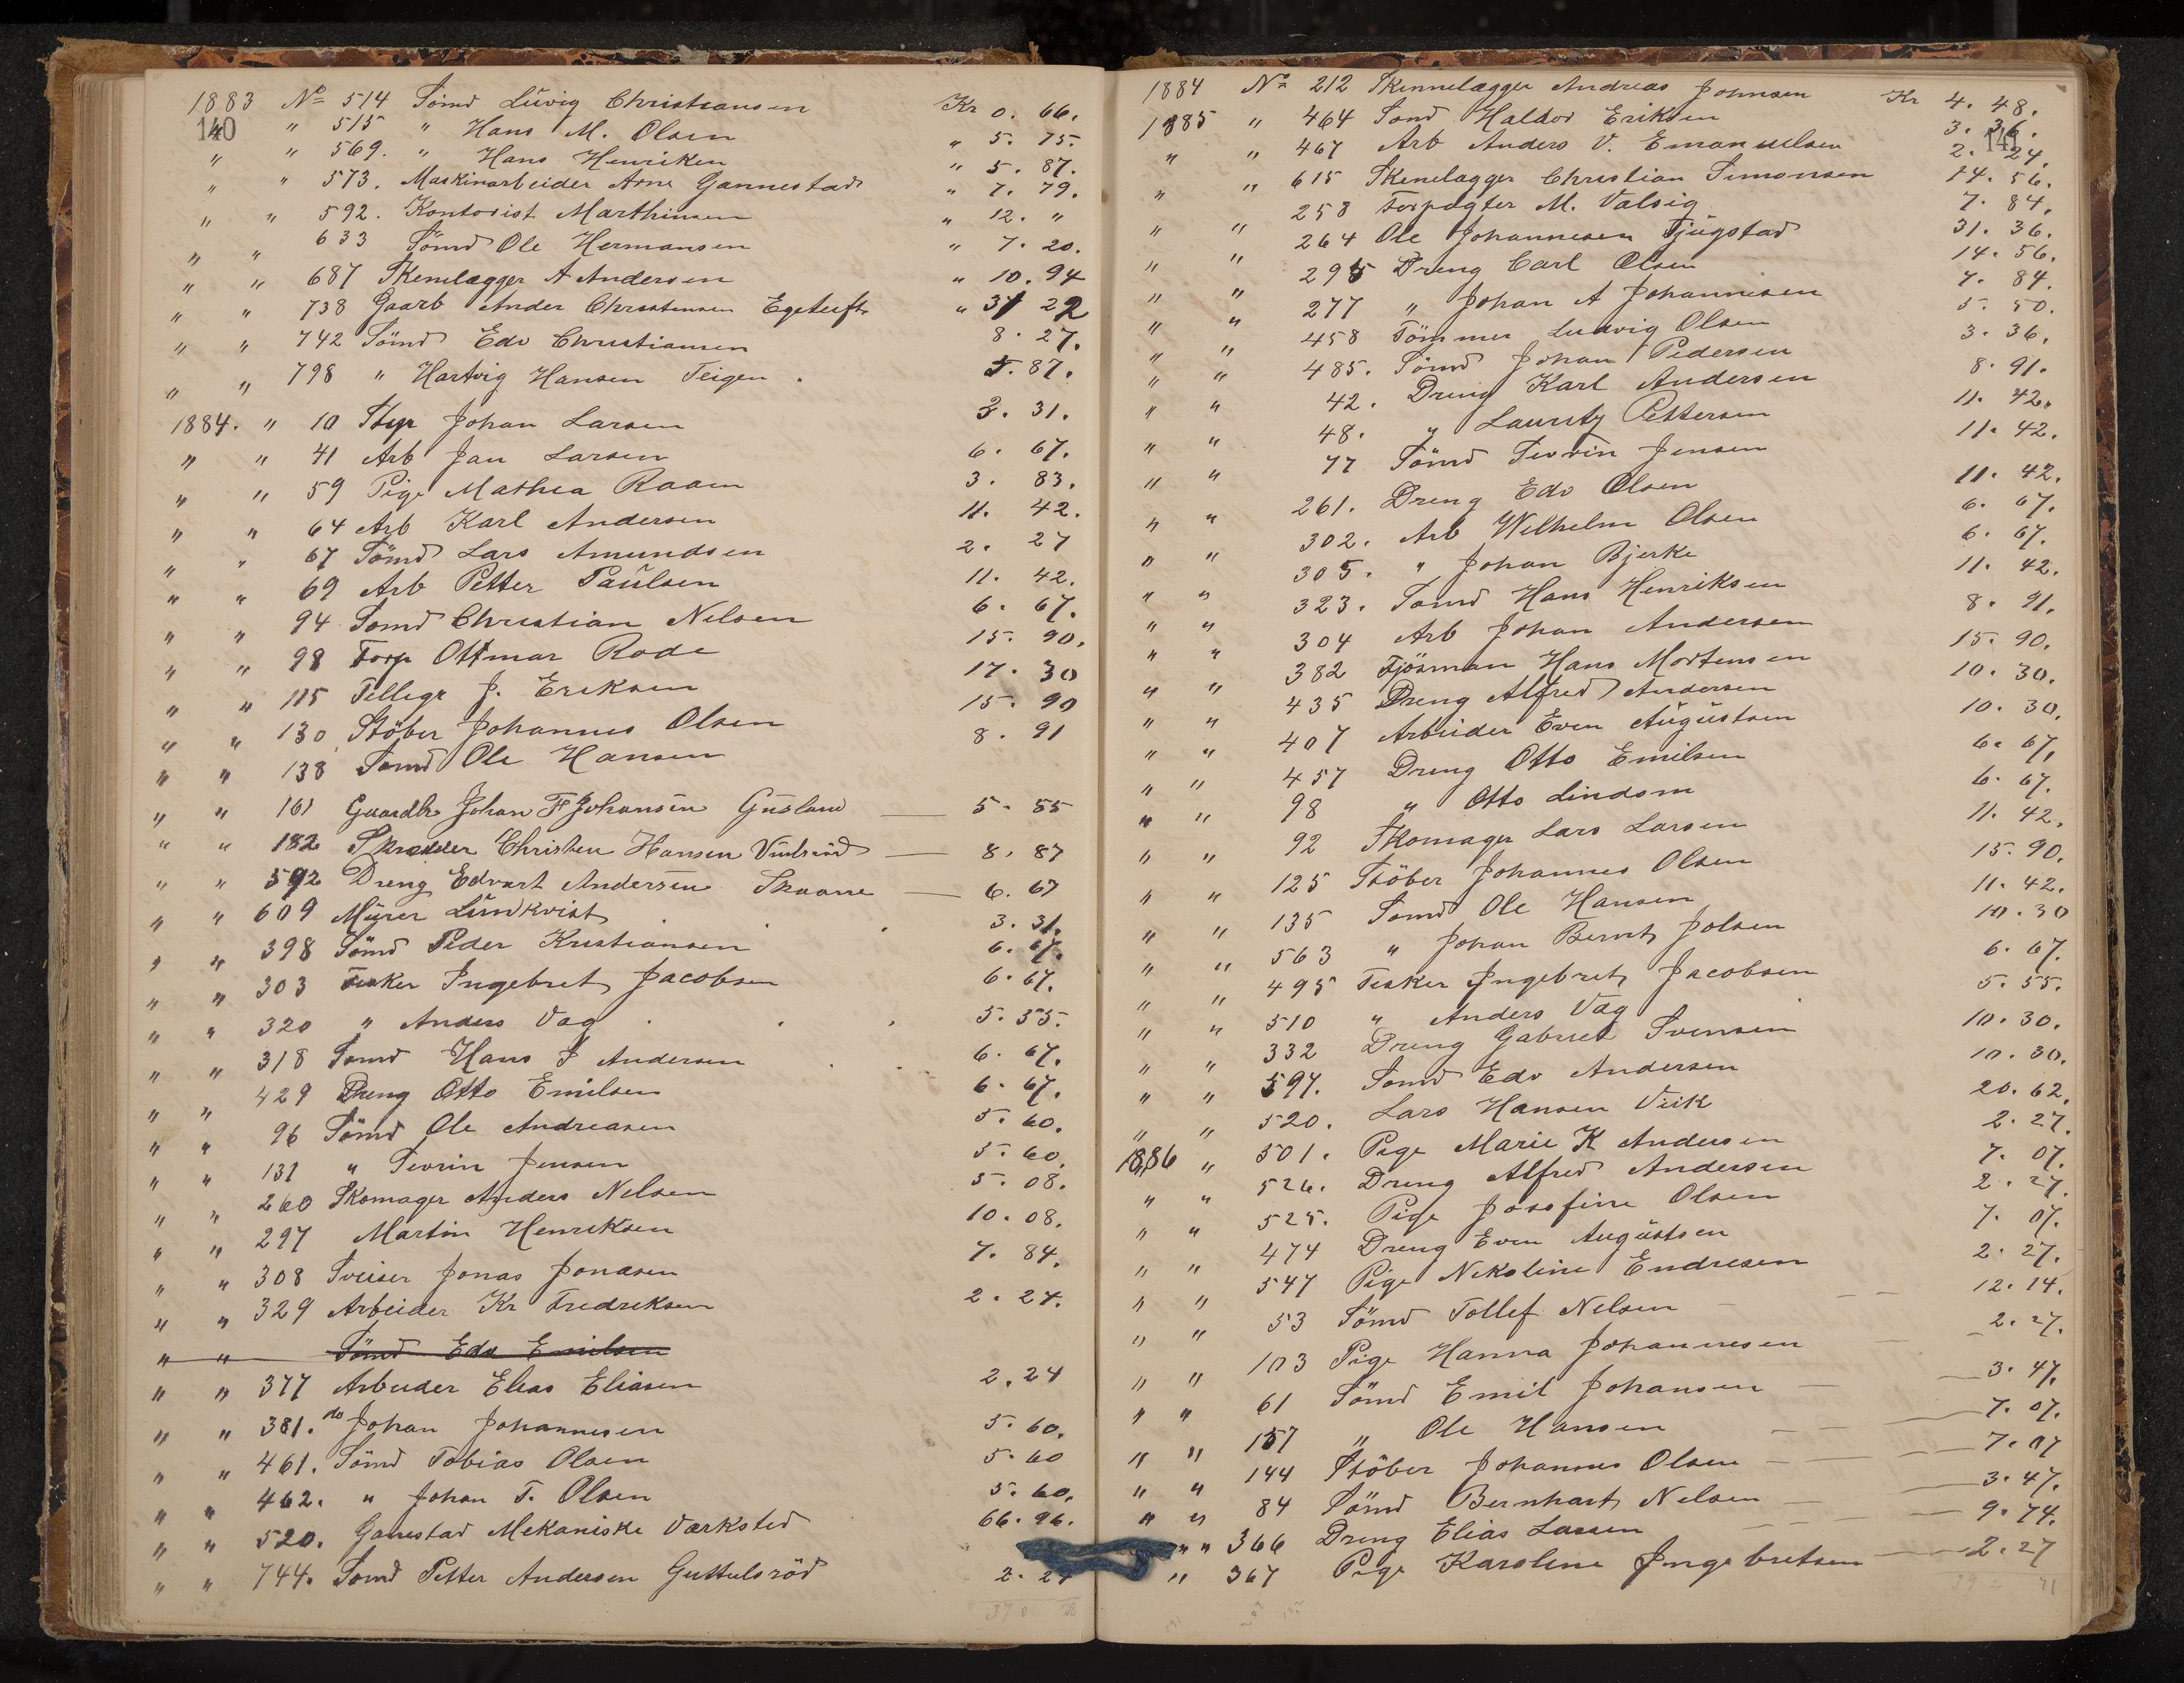 140
1883 No 514 Sömd Lüvig Christiansen Kr 0. 66.
" " 515 " Hans M. Olsen " 5. 75.
" " 569. " Hans Henriken " 5. 87.
" " 573. Maskinarbeider Arne Gannestad " 7. 79.
" " 592. Kontorist Marthinsen " 12. "
" " 633 Sömd Ole Hermansen " 7. 20.
" " 687 Skenelægger A Andersen " 10. 94
" " 738 Gaarb Ander Christensen " 31 22
" " 742 Sömd Edv Christiansen 8. 27.
" " 798 " Hartvig Hansen Teigen . 5. 87.
1884. " 10 Styr Johan Larsen 3. 31.
" " 41 Arb Jan Larsen 6. 67.
" " 59 Pige Mathea Raaen 3. 83.
" " 64 Arb Karl Andersen 11. 42.
" " 67 Sömd Lars Amundsen 2. 27
" " 69 Arb Petter Paülsen 11. 42.
" " 94 Somd Christian Nilsen 6. 67.
" " 98 Forp Ottmar Rode 15. 90.
" " 115 J. Eriksen 17. 30
" " 130 Stöber Johannes Olsen 15. 90
" " 138 Somd Ole Hansen 8. 91
" " 161 Gaardb Johan F Johansen Gusland — 5. 55
" " 182 Skrædder Christen Hansen — 8. 87
" " 592 Dreng Edvart Andersen Skaarre — 6. 67
" " 609 Mürer Lündkvist 3. 31.
" " 398 Sömd Peder Kristiansen 6. 67.
" " 303 Fisker Ingebret Jacobsen 6. 67.
" " 320 " Anders Vag 5. 55.
" " 318 Somd Hans P Andersen 6. 67.
" " 429 Dreng Otto Emilsen 6. 67.
" " 96 Sömd Ole Andreasen 5. 60.
" " 131 " Sevrin Jensen 5. 60.
" " 260 Skomager Anders Nelsen 5. 08.
" " 297 Martin Henriksen 10. 08.
" " 308 Sveiser Jonas Jonasen 7. 84.
" " 329 Arbeider Kr Fredreksen 2. 24.
" " Sömd Edv Emilsen
" " 377 Arbeider Elias Eliasen 2. 24
" " 381. do Johan Johannesen 5. 60.
" " 461. Sömd Tobias Olsen 5. 60
" " 462. " Johan T. Olsen 5. 60.
" " 520. Ganestad Mekaniske Værksted 66. 96.
" " 744. Somd Petter Andersen Guttulsröd 2. 27
141
1884 No 212 Skennelægger Andreas Johnsen Kr 4. 48.
1885 " 464 Sond Haldor Eriksen 3. 36.
" " 467 Arb Anders V. Emanuelsen 2. 24.
" " 615 Skenelægger Christian Simonsen 14. 56.
" 258 Forpagter M. Valsig 7. 84.
" " 264 Ole Johannesen Tjügstad 31. 36.
" " 295 Dreng Carl Olsen 14. 56.
" " 277 " Johan A Johannesen 7. 84.
" " 458 Tömmer Ludvig Olsen 5. 50.
" " 485. Sömd Johan Pedersen 3. 36.
" " 42. Dreng Karl Andersen 8. 91.
" " 48. " Lauritz Pettersen 11. 42.
" " 77 Sömd Sevrin Jensen 11. 42.
" " 261. Dreng Edv Olsen 11. 42.
" " 302. Arb Wilhelm Olsen 6. 67.
" " 305. " Johan Bjerke 6. 67.
" " 323. Somd Hans Henriksen 11. 42.
" " 304 Arb Johan Andersen 8. 91.
" " 382 Fjösman Hans Mortensen 15. 90.
" " 435 Dreng Alfred Andersen 10. 30.
" " 407 Arbeider Even Augüstsen 10. 30.
" " 457 Dreng Otto Emilsen 6. 67.
" " 98 " Otto Lindom 6. 67.
" " 92 Skomager Lars Larsen 11. 42.
" " 125 Stöber Johannes Olsen 15. 90.
" " 135 Somd Ole Hansen 11. 42.
" " 563 " Johan Bernt Jolsen 10. 30
" " 495 Fisker Ingebret Jacobsen 6. 67.
" " 510 " Anders Vag 5. 55.
" " 332 Dreng Gabriel Svensen 10. 30.
" " 597. Somd Edv Andersen 10. 30.
" " 520. Lars Hansen Viik 20. 62.
1886 " 501. Pige Marie K Andersen 2. 27.
" " 526. Dreng Alfred Andersen 7. 07.
" " 525. Pige Josefine Olsen 2. 27.
" " 474 Dreng Even Augüstsen 7. 07.
" " 547 Pige Nikoline Endresen 2. 27.
" " 53 Sömd Tollef Nelsen 12. 14.
" " 103 Pige Hanna Johannesen 2. 27.
" " 61 Sömd Emil Johansen 3. 47.
" " 157 " Ole Hansen 7. 07.
" " 144 Stöber Johannes Olsen 7. 07
" " 84 Sömd Bernhart Nelsen 3. 47.
" " 366 Dreng Elias Lassen 9. 74.
" 367 Pige Karoline Ingebretsen 2. 27